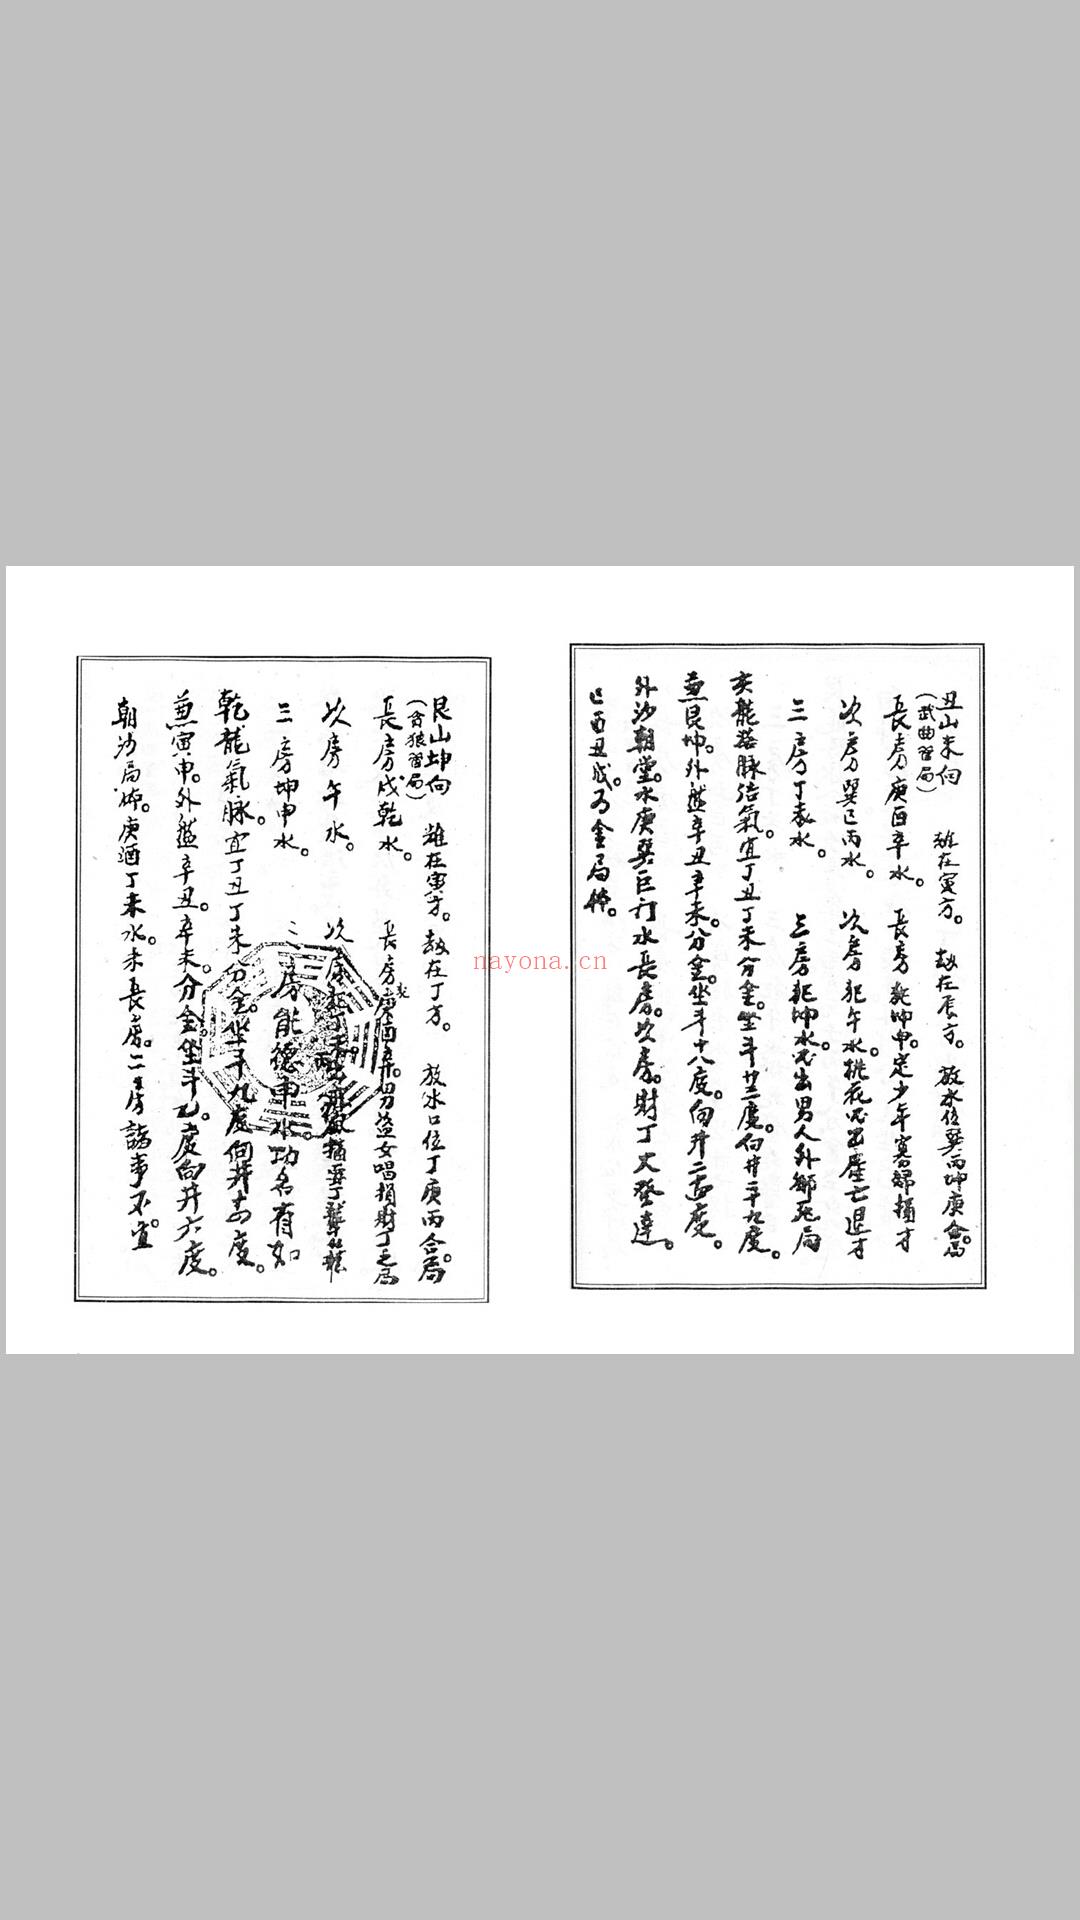 丑山未向　雄在寅方。　劫在辰方。　放水位巽丙坤庚合局。
(武曲習局)
長房庚酉辛水。　長房犯坤申。定少年寡婦損才
次房巽巳丙水。　次房犯午水。桃花　亡退才
三房丁未水。　三房犯坤水。必出男人外鄉死局
亥龍落脉結氣。宜丁丑丁未分金。坐斗廿三度。向井二十九度。
兼艮坤。外盤辛丑辛未。分金。坐斗十八度。向井二　度。
外沙朝堂。水庚巽巨门水長房。次房。財丁大發達。
巳酉丑戌。為金局
艮山坤向　雄在寅方。劫在丁方。　放水口位丁庚丙合局。
(貪狼習局)
長房戌乾水。　長房犯庚酉辛。　盜女唱損財丁之局
次房午水。　次房犯丁未　損妻丁
三房坤申水。　三房能德申水功名有如
乾龍氣脉。宜丁丑丁未分金。坐斗九度向井　度。
兼寅申。外盤辛丑。辛未。分金坐斗乙。度向井六度。
朝沙局　。庚酒丁未水。未長房。二三房諸事不宜。
nayona.cn